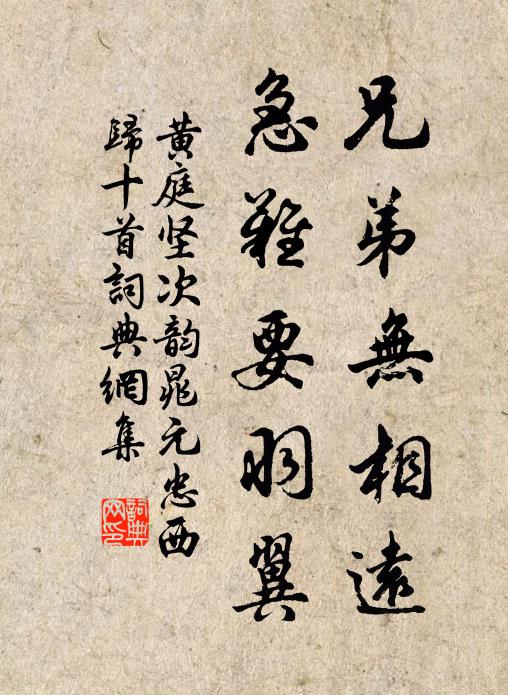 兄弟無相遠
急難要羽翼
黄庭坚次韵晁元忠西
歸十首詞典網集
詞典网印